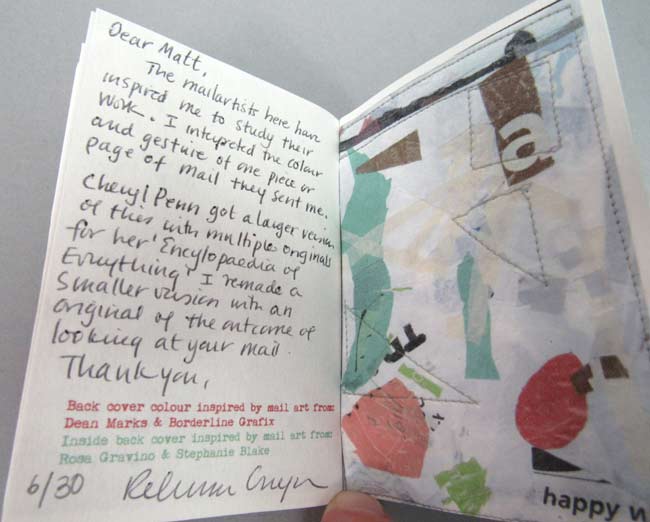 Dear Matt,
The mailartists here have
inspired me to study their
work. I interpreted the colour
and gesture of one piece or
page of mail they sent me.
Cheryl Penn got a larger version
of this with multiple originals
for her 'Encylopaedia of
Everything'. I remade a
smaller version with an
original of the outcome of
looking at your mail.
Thank you,
Back cover colour inspired by mail art from:
Dean Marks & Borderline Grafix
Inside back cover inspired by mail art from:
Rosa Gravino & Stephanie Blake
6/30
a
happy